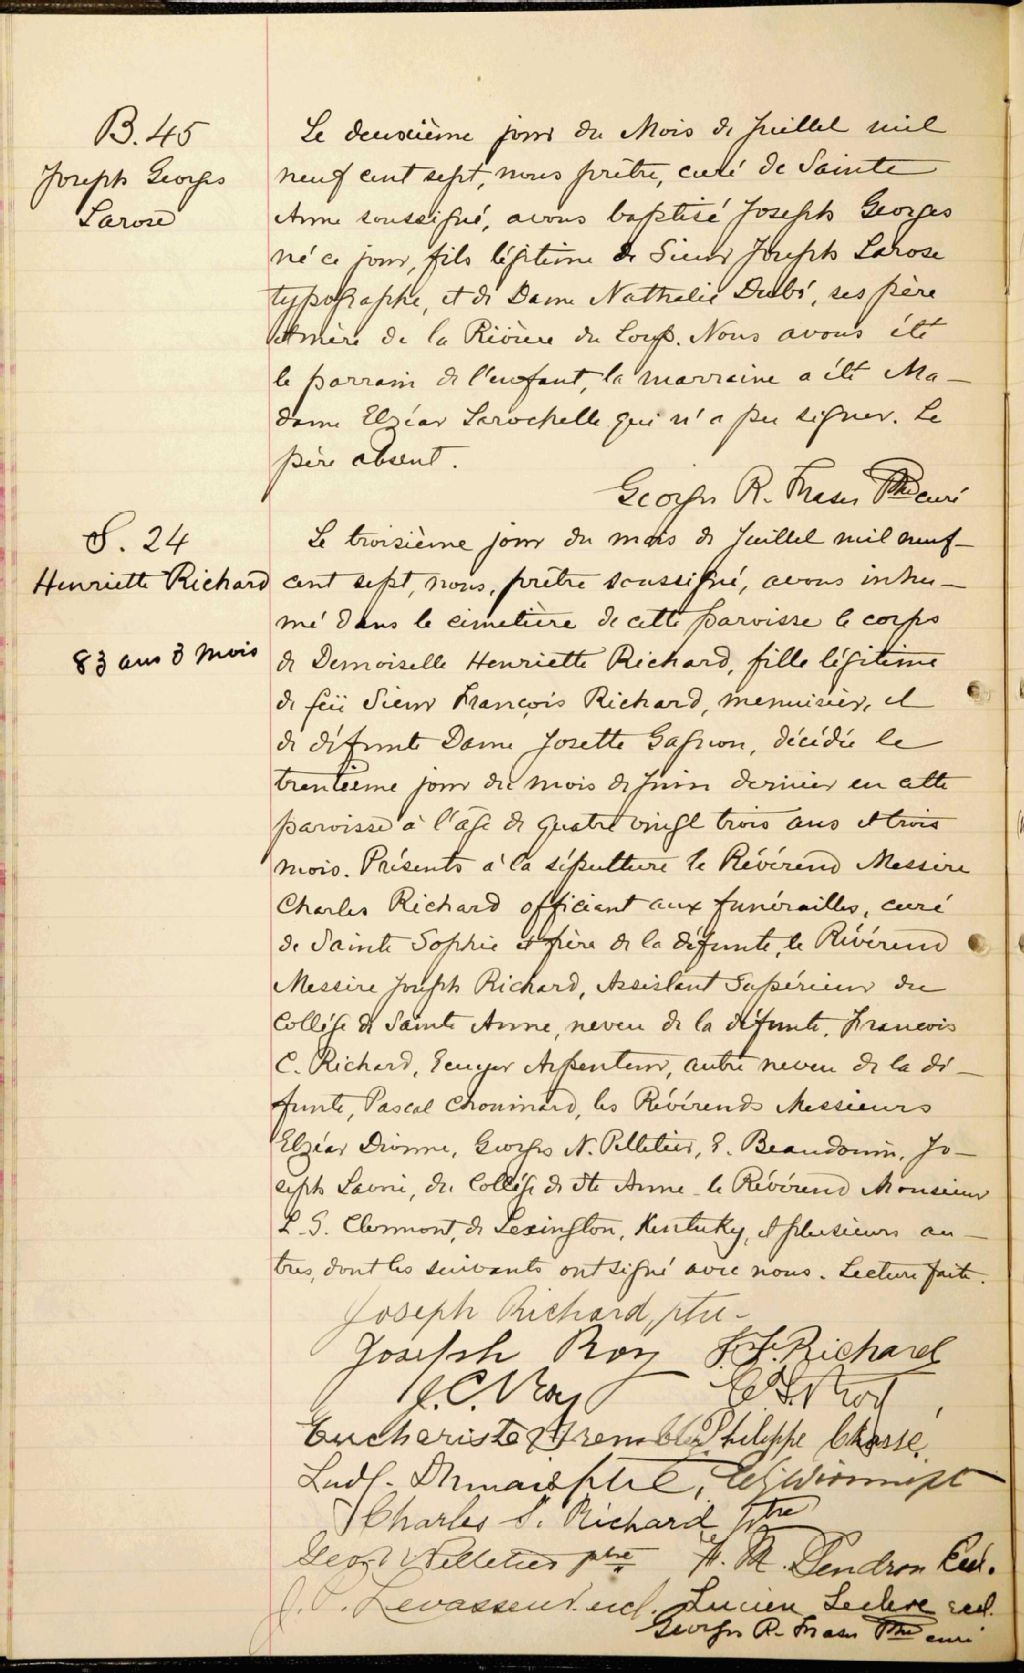 B. 45
Joseph Georges
Larose
Le deuxième jour du Mois de Juillet mil
neuf cent sept, nous prêtre, curé de Sainte
Anne soussigné, avons baptisé Joseph Georges
né ce jour, fils légitime de Sieur Joseph Larose
typographe, et de Dame Nathalie Dubé, ses père
et mère de la Rivière du Loup. Nous avons été
le parrain de l'enfant, la marraine a été Ma-
dame Elzéar Larochelle qui n'a pu signer. Le
père absent.
Georges R. Fraser Ptre curé
S. 24
Henriette Richard
83 ans 3 mois
Le troisième jour du mois de Juillet mil neuf-
cent sept, nous, prêtre soussigné, avons inhu-
mé dans le cimetière de cette paroisse le corps
de Demoiselle Henriette Richard, fille légitime
de feü Sieur François Richard, menuisier, et
de défunte Dame Josette Gagnon, décédée le
trentième jour du mois de Juin dernier en cette
paroisse à l'âge de quatre vingt trois ans et trois
mois. Présents à la sépulture le Révérend Messire
Charles Richard officiant aux funérailles, curé
de Sainte Sophie et frère de la défunte, le Révérend
Messire Joseph Richard, Assistant Supérieur du
Collége de Sainte Anne, neveu de la défunte, François
C. Richard, Ecuyer Arpenteur, autre neveu de la dé-
funte, Pascal Chouinard, les Révérends Messieurs
Elzéar Dionne, Georges N. Pelletier, E. Beaudouin, Jo-
seph Lavoie, du Collége de Ste Anne - le Révérend Monsieur
L. G. Clermont, de Lexington, Kentuky, et plusieurs au-
tres, dont les suivants ont signé avec nous. Lecture faite.
Joseph Richard, ptre-
Joseph Roy F. Richard
J. C. Roy Roy
Euchariste Tremblay Philippe Chassé,
Ludg. Dumais ptre,
Charles S. Richard ptre
Geo. N Pelletier ptre A. M. Gendron Eccl.
J. P. Levasseur. eccl. Lucien Leclerc eccl.
Georges R. Fraser Ptre curé